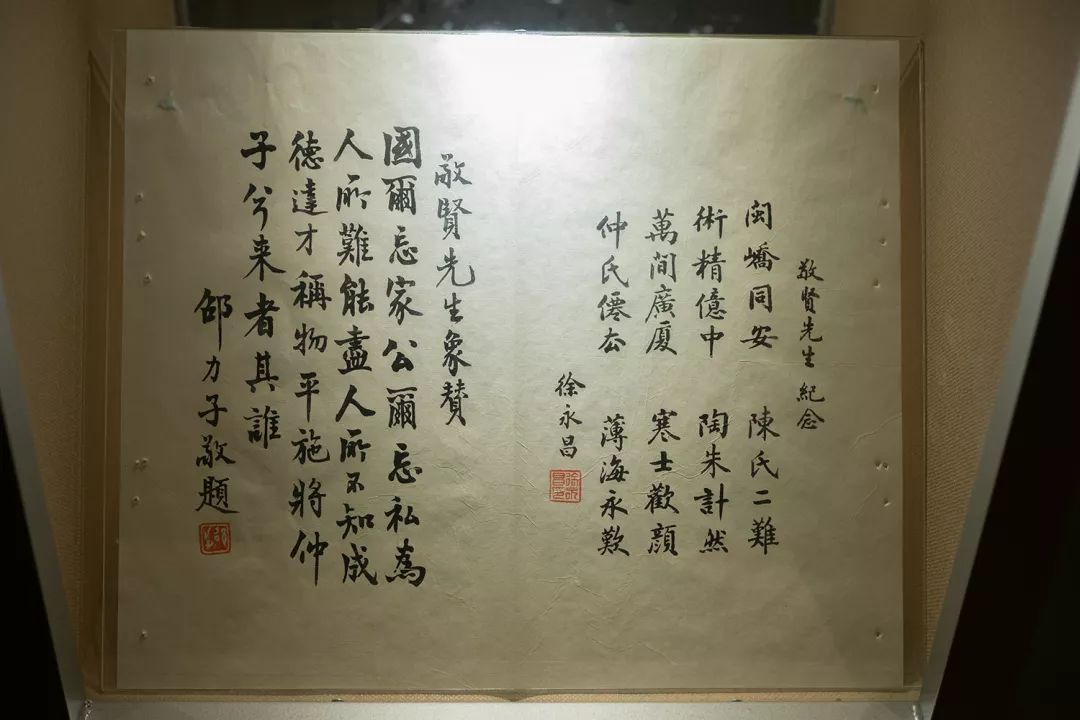 敬賢先生紀念
閩嶠同安 陳氏二難
術精億中 陶朱計然
萬間廣厦 寒士歡顔
仲氏僊去 薄海永歎
徐永昌
敬賢先生象贊
國爾忘家公爾忘私爲
人所難能盡人所不知成
德達才稱物平施將仲
子兮来者其誰
邵力子敬題